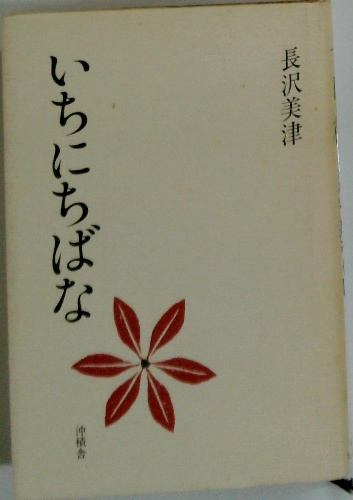 長沢美津
いちにちばな
沖積舎